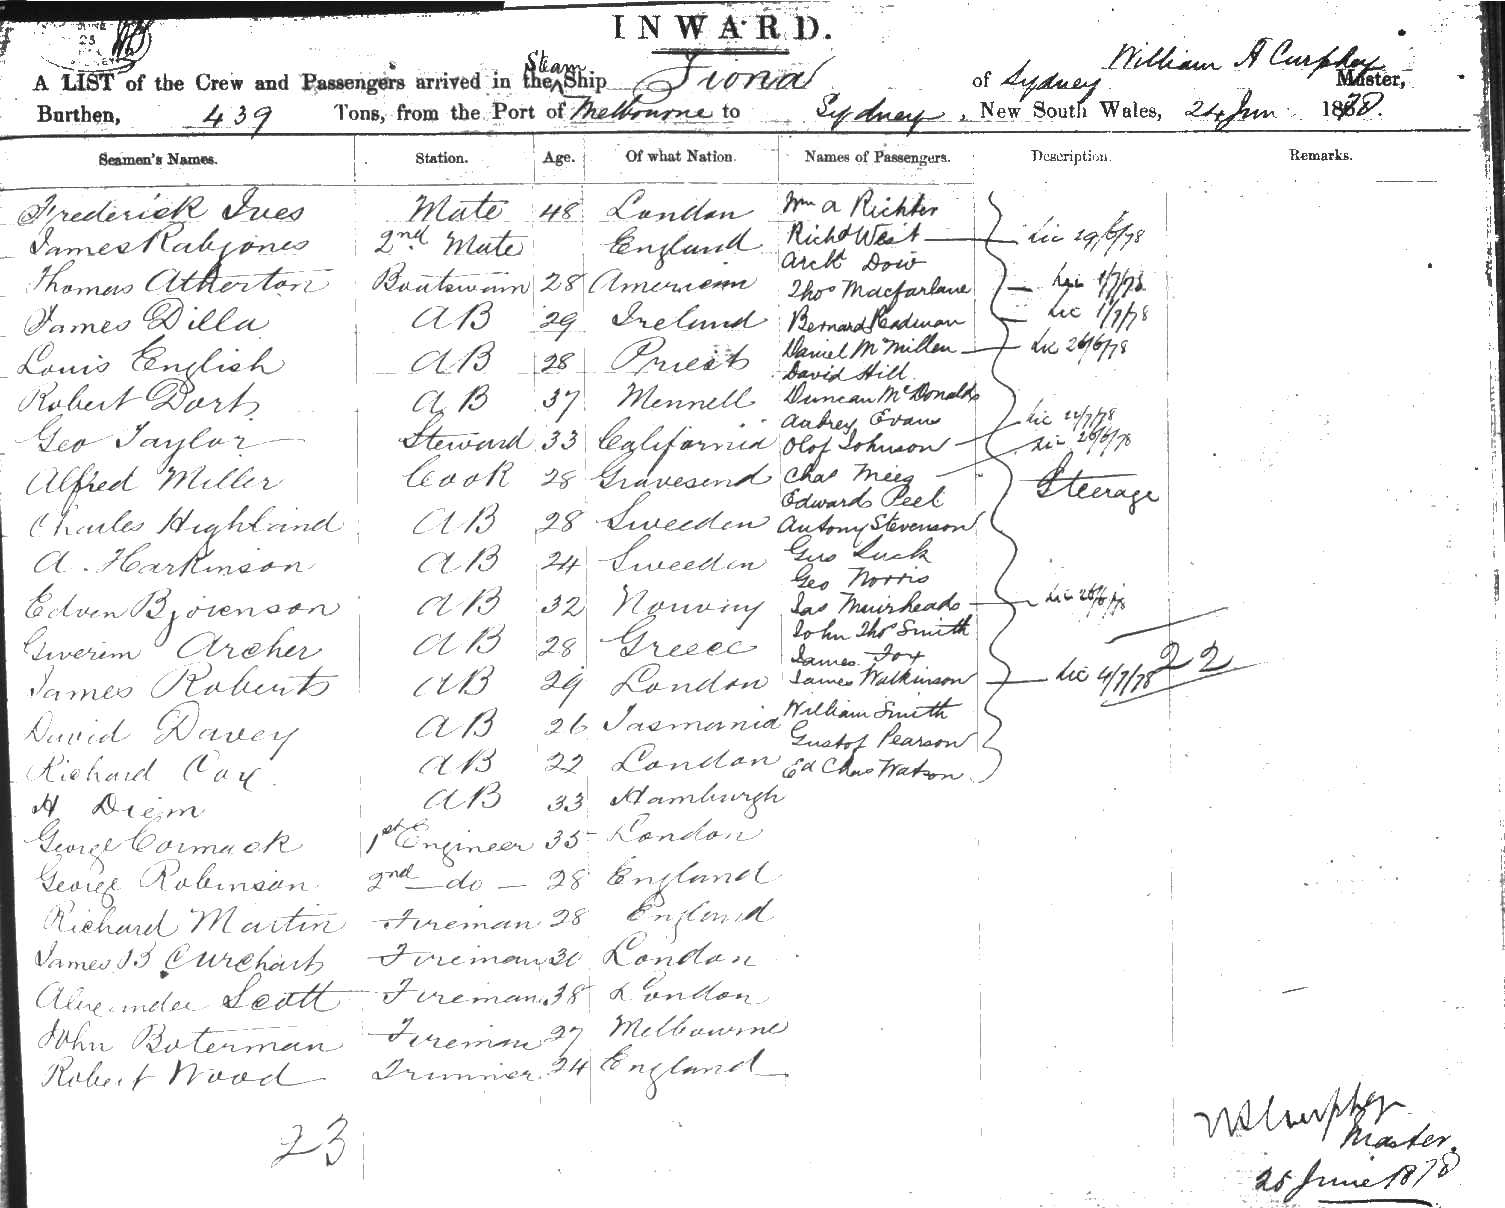 INWARD.
Steam
William A Curphey
A LIST of the Crew and Passengers arrived in the Ship Fiona of Sydney Master,
Burthen, 439 Tons, from the Port of Melbourne to Sydney, New South Wales, 24 Jun 1878.
Seamen's Names. Station. Age. Of what Nation. Names of Passengers. Description. Remarks.
Frederick Ives Mate 48 London
James Rabjones 2nd Mate England
Thomas Atherton Boatswain 28 American
James Dilla AB 29 Ireland
Louis English AB 28
Robert AB 37
Geo Taylor Steward 33 California
Alfred Miller Cook 28 Gravesend
Charles Highland AB 28 Sweeden
A. Harkinson AB 24 Sweeden
Edven Bjorenson AB 32
Archer AB 28 Greece
James Roberts AB 29 London
David Davey AB 26 Tasmania
Richard Cox AB 22 London
H Diem AB 33 Hamburgh
George Cormack 1st Engineer 35 London
George Robinson 2nd do 28 England
Richard Martin Fireman 28 England
James B Fireman 30 London
Alexander Scott Fireman 38 London
John Boterman Fireman 27 Melbourne
Robert Wood Trimmer 24 England
23
Wm A Richter
Richd West Lic 29/6/78
Archd Dow
Thos Macfarlane Lic 1/7/78
Bernard Readman Lic 1/7/78
Daniel McMillen Lic 26/6/78
David Hill
Duncan McDonald
Aubrey Evans
Olof Johnson Lic /7/78
Chas Lic 26/6/78
Edward Peel
Antony Stevenson
Steerage
Gus Luck
Geo Norris
Jas Muirhead Lic 26/6/78
John Thos Smith
James Fox
James Watkinson Lic 4/7/78
22
William Smith
Gustof Pearson
Ed Chas Watson
W A Curphey
Master.
25 June 1878